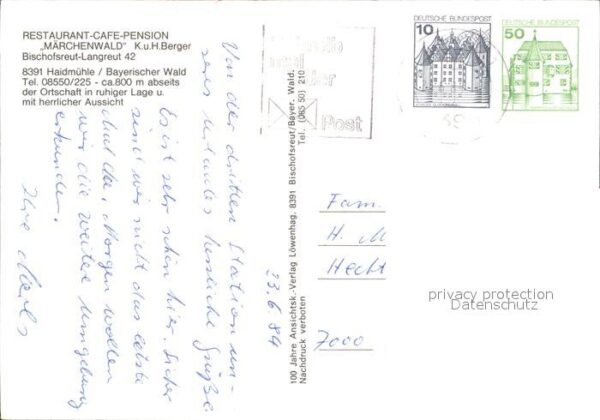 RESTAURANT-CAFE-PENSION
„MÄRCHENWALD" K.u.H.Berger
Bischofsreut-Langreut 42
8391 Haidmühle / Bayerischer Wald
Tel. 08550/225 - ca.800 m abseits
der Ortschaft in ruhiger Lage u.
mit herrlicher Aussicht
Von der dritten Station un-
seres Urlaubes herzliche Grüße.
Es ist sehr schön hier. Sicher
sind wir nicht das letzte
Mal da. Morgen wollen
wir die weitere Umgebung
erkunden.
Ihre
23.6.84
100 Jahre Ansichtsk.-Verlag Löwenhag, 8391 Bischofsreut/Bayer. Wald.
Nachdruck verboten
Tel. (085 50) 210
Post
DEUTSCHE BUNDESPOST
10
DEUTSCHE BUNDESPOST
50
Fam.
H. M
Hecht
7000
privacy protection
Datenschutz